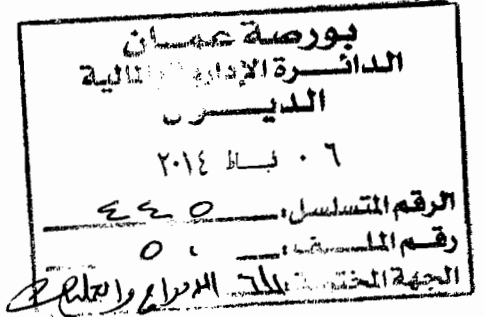 بورصة عمان
الدائرة الإدارية والمالية
الديوان
٠٦ شباط ٢٠١٤
الرقم المتسلسل: ٤٤٥
رقم الملف: ٥٠
الجهة المختصة: